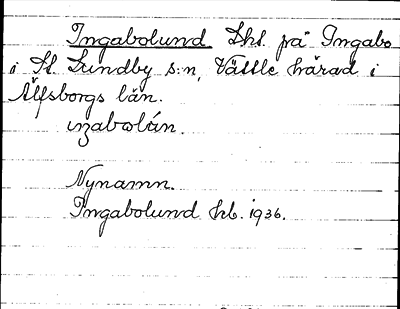 Ingabolund Lht. på Ingabo
i St. Lundby s:n, Vättle härad i
Älfsborgs län.
Nynamn.
Ingabolund kb. 1936.